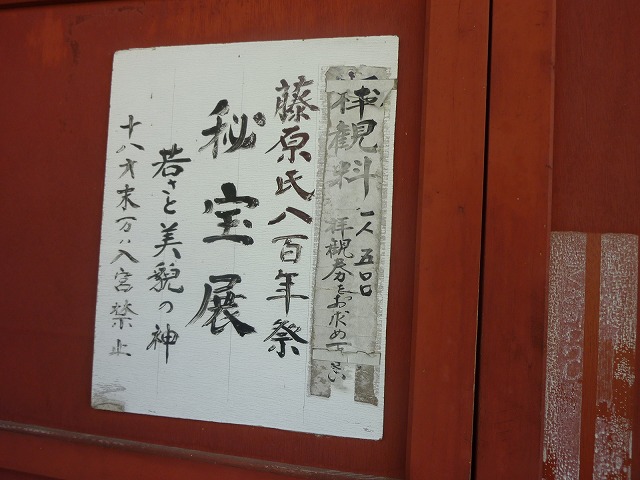 拝観料 一人 五〇〇
拝観券をお求め下さい
藤原氏八百年祭
秘宝展
若さと美貌の神
十八才末万入宮禁止